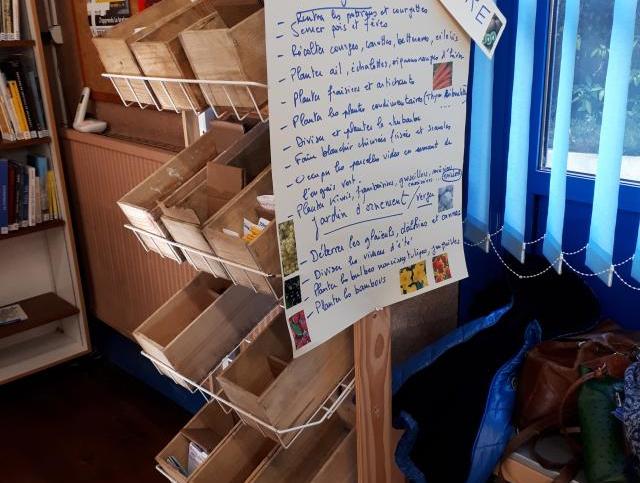 - Rentrer les potirons et courgettes
Semer pois et fèves
- Récolter courges, carottes, betteraves, céleris
- Planter ail, échalottes, oignons
- Planter fraisiers et artichauts
- Planter les plantes condimentaires (Thym
- Diviser et planter la rhubarbe
- Faire blanchir chicorées frisées et scaroles
- Occuper les parcelles vides en semant de
l'engrais vert.
- Planter Kiwis, framboisiers, groseilliers,
jardin d'ornement / verger
- Déterrer les glaïeuls, dahlias et cannas
- Diviser les vivaces d'été
- Planter les bulbes narcisses, tulipes,
- Planter les bambous
RE